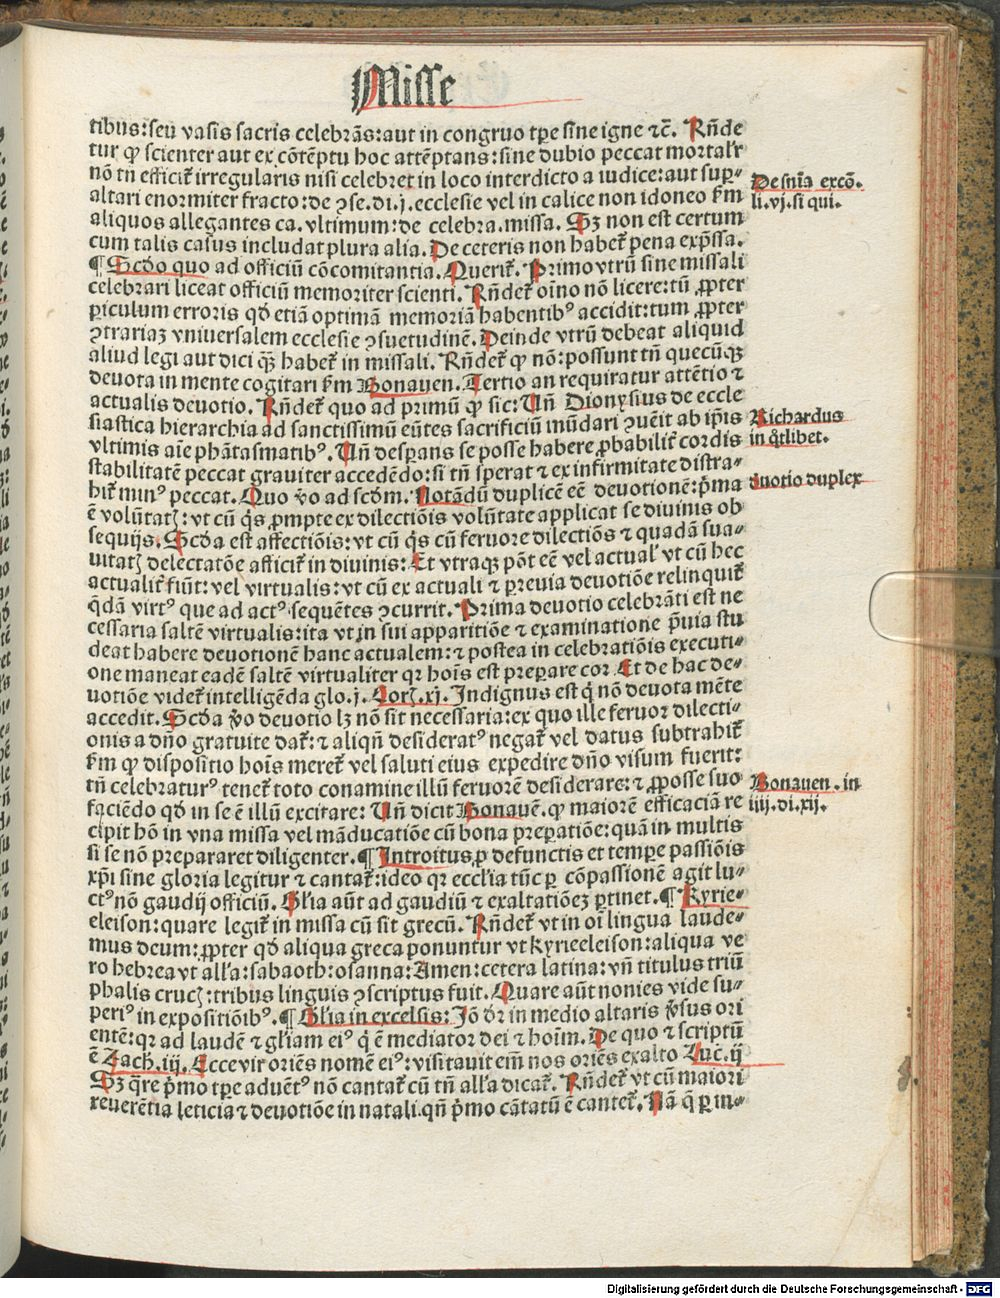 Misse
tibus: seu vasis sacris celebrās: aut in congruo tꝑe sine igne ⁊c̄. Rn̄de
tur ꝙ scienter aut ex cōtēptu hoc attēptans: sine dubio peccat mortal'r
nō tn̄ efficit̄ irregularis nisi celebret in loco interdicto a iudice: aut suꝑ-
altari enormiter fracto: de ꝯse. di. j. ecclesie vel in calice non idoneo ẜm
aliquos allegantes ca. vltimum: de celebra. missa. Sꝫ non est certum
cum talis casus includat plura alia. De ceteris non habet̄ pena exp̄ssa.
¶ Scd̄o quo ad officiū cōcomitantia. Querit̄. Primo vtrū sine missali
celebrari liceat officiū memoriter scienti. Rn̄det̄ oīno nō licere: tū ꝓpter
ꝑiculum erroris qd̄ etiā optimā memoriā habentibꝰ accidit: tum ꝓpter
ꝯtrariaꝫ vniuersalem ecclesie ꝯsuetudinē. Deinde vtrū debeat aliquid
aliud legi aut dici qꝫ̄ habet̄ in missali. Rn̄det̄ ꝙ nō: possunt tn̄ quecūqꝫ
deuota in mente cogitari ẜm Bonauen. Tertio an requiratur attētio ⁊
actualis deuotio. Rn̄det̄ quo ad primū ꝙ sic: Vn̄ Dionysius de eccle
siastica hierarchia ad sanctissimū eūtes sacrificiū mūdari ꝯuēit ab ip̄is
vltimis aīe phātasmatibꝰ. Vn̄ desꝑans se posse habere ꝓbabilit̄ cordis
stabilitatē peccat grauiter accedēdo: si tn̄ sperat ⁊ ex infirmitate distra-
hit̄ minꝰ peccat. Quo v̄o ad scd̄m. Notādū duplicē eē deuotionē: p̄ma
ē volūtatꝭ: vt cū q̄s ꝓmpte ex dilectiōis volūtate applicat se diuinis ob
sequijs. Scd̄a est affectiōis: vt cū q̄s cū feruore dilectiōis ⁊ quadā sua-
uitatꝭ delectatōe afficit̄ in diuinis: Et vtraqꝫ pōt eē vel actual' vt cū hec
actualit̄ fiūt: vel virtualis: vt cū ex actuali ⁊ ꝑreuia deuotiōe relinquit̄
q̄dā virtꝰ que ad actꝰ sequētes ꝯcurrit. Prima deuotio celebrāti est ne
cessaria saltē virtualis: ita vt in sui apparitiōe ⁊ examinatione p̄uia stu
deat habere deuotionē hanc actualem: ⁊ postea in celebratiōis executi-
one maneat eadē saltē virtualiter qꝛ hoīs est preꝑare cor Et de hac de-
uotiōe videt̄ intelligēda glo. j. Corꝭ. xj. Indignus est q̄ nō deuota mēte
accedit. Scd̄a v̄o deuotio lꝫ nō sit necessaria: ex quo ille feruor dilecti-
onis a dn̄o gratuite dat̄: ⁊ aliqn̄ desideratꝰ negat̄ vel datus subtrahit̄
ẜm ꝙ dispositio hoīs meret̄ vel saluti eius expedire dn̄o visum fuerit:
tn̄ celebraturꝰ tenet̄ toto conamine illū feruorē desiderare: ⁊ ꝓ posse suo
faciēdo qd̄ in se ē illū excitare: Vn̄ dicit Bonauē. ꝙ maiorē efficaciā re
cipit hō in vna missa vel māducatiōe cū bona preꝑatiōe: quā in multis
si se nō prepararet diligenter. ¶ Introitus ꝓ defunctis et tempe passiōis
xp̄i sine gloria legitur ⁊ cantat̄: ideo qꝛ eccl'ia tūc ꝑ cōpassionē agit lu-
ctꝰ nō gaudij officiū. Gl'ia aūt ad gaudiū ⁊ exaltatiōeꝫ ꝑtinet. ¶ Kyrie-
eleison: quare legit̄ in missa cū sit grecū. Rn̄det̄ vt in oī lingua laude-
mus deum: ꝓpter qd̄ aliqua greca ponuntur vt kyrieeleison: aliqua ve
ro hebrea vt all'a: sabaoth: osanna: Amen: cetera latina: vn̄ titulus triū
phalis crucꝭ: tribus linguis ꝯscriptus fuit. Quare aūt nonies vide su-
periꝰ in expositiōibꝰ. ¶ Gl'ia in excelsis: Iō dr̄ in medio altaris v̄sus ori
entē: qꝛ ad laudē ⁊ gl'iam eiꝰ q̄ ē mediator dei ⁊ hoīm. De quo ⁊ scriptū
ē Zach. iij. Ecce vir oriēs nomē eiꝰ: visitauit em̄ nos oriēs ex alto Luc̄. ij
Sꝫ q̄re p̄mo tꝑe aduētꝰ nō cantat̄ cū tn̄ all'a dicat̄. Rn̄det̄ vt cū maiori
reuerētia leticia ⁊ deuotiōe in natali. qn̄ p̄mo cātatū ē cantet̄. Nā q̄ ꝑ in-
De sn̄ia excō.
li. vj. si qui.
Richardus
in q̄tlibet.
duotio duplex
Bonauen. in
iiij. di. xij.
Digitalisierung gefördert durch die Deutsche Forschungsgemeinschaft - DFG